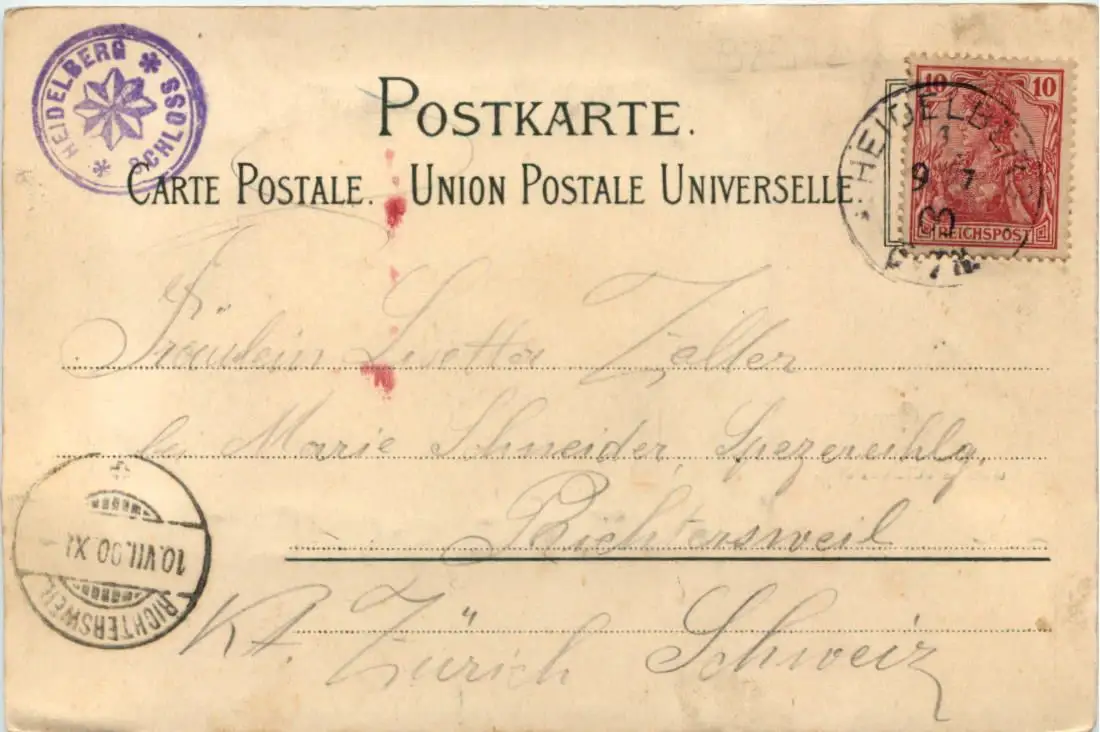 * HEIDELBERG * SCHLOSS
POSTKARTE.
CARTE POSTALE. UNION POSTALE UNIVERSELLE.
10 10
REICHSPOST
HEIDELBERG
9 7
Fräulein Zeller
bei Marie Schneider, Spezereihlg.
Richtersweil
Kt. Zürich Schweiz
10.VII.00 XI
RICHTERSWEIL